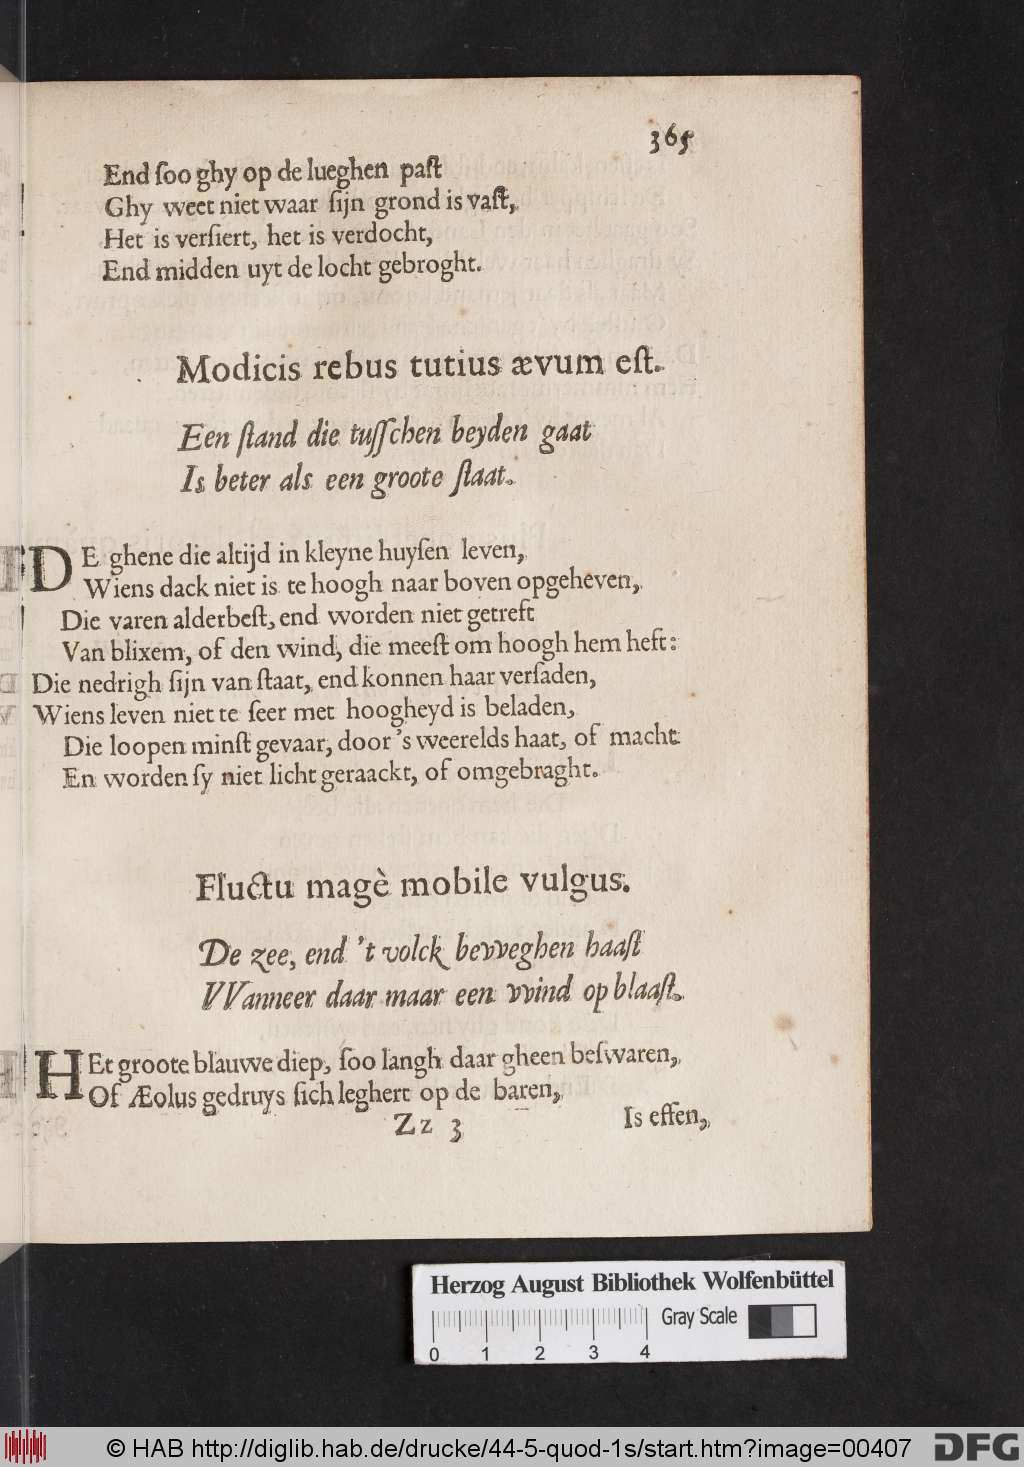 365
End ſoo ghy op de lueghen paſt
Ghy weet niet waar ſijn grond is vaſt,
Het is verſiert, het is verdocht,
End midden uyt de locht gebroght.
Modicis rebus tutius ævum eſt.
Een ſtand die tuſſchen beyden gaat
Is beter als een groote ſtaat.
DE ghene die altijd in kleyne huyſen leven,
Wiens dack niet is te hoogh naar boven opgeheven,
Die varen alderbeſt, end worden niet getreft
Van blixem, of den wind, die meeſt om hoogh hem heft:
Die nedrigh ſijn van ſtaat, end konnen haar verſaden,
Wiens leven niet te ſeer met hoogheyd is beladen,
Die loopen minſt gevaar, door 's weerelds haat, of macht
En worden ſy niet licht geraackt, of omgebraght.
Fluctu magè mobile vulgus.
De zee, end 't volck bevveghen haaſt
VVanneer daar maar een vvind op blaaſt.
HEt groote blauwe diep, ſoo langh daar gheen beſwaren,
Of Æolus gedruys ſich leghert op de baren,
Zz 3
Is effen,
Herzog August Bibliothek Wolfenbüttel
Gray Scale
0 1 2 3 4
© HAB http://diglib.hab.de/drucke/44-5-quod-1s/start.htm?image=00407
DFG